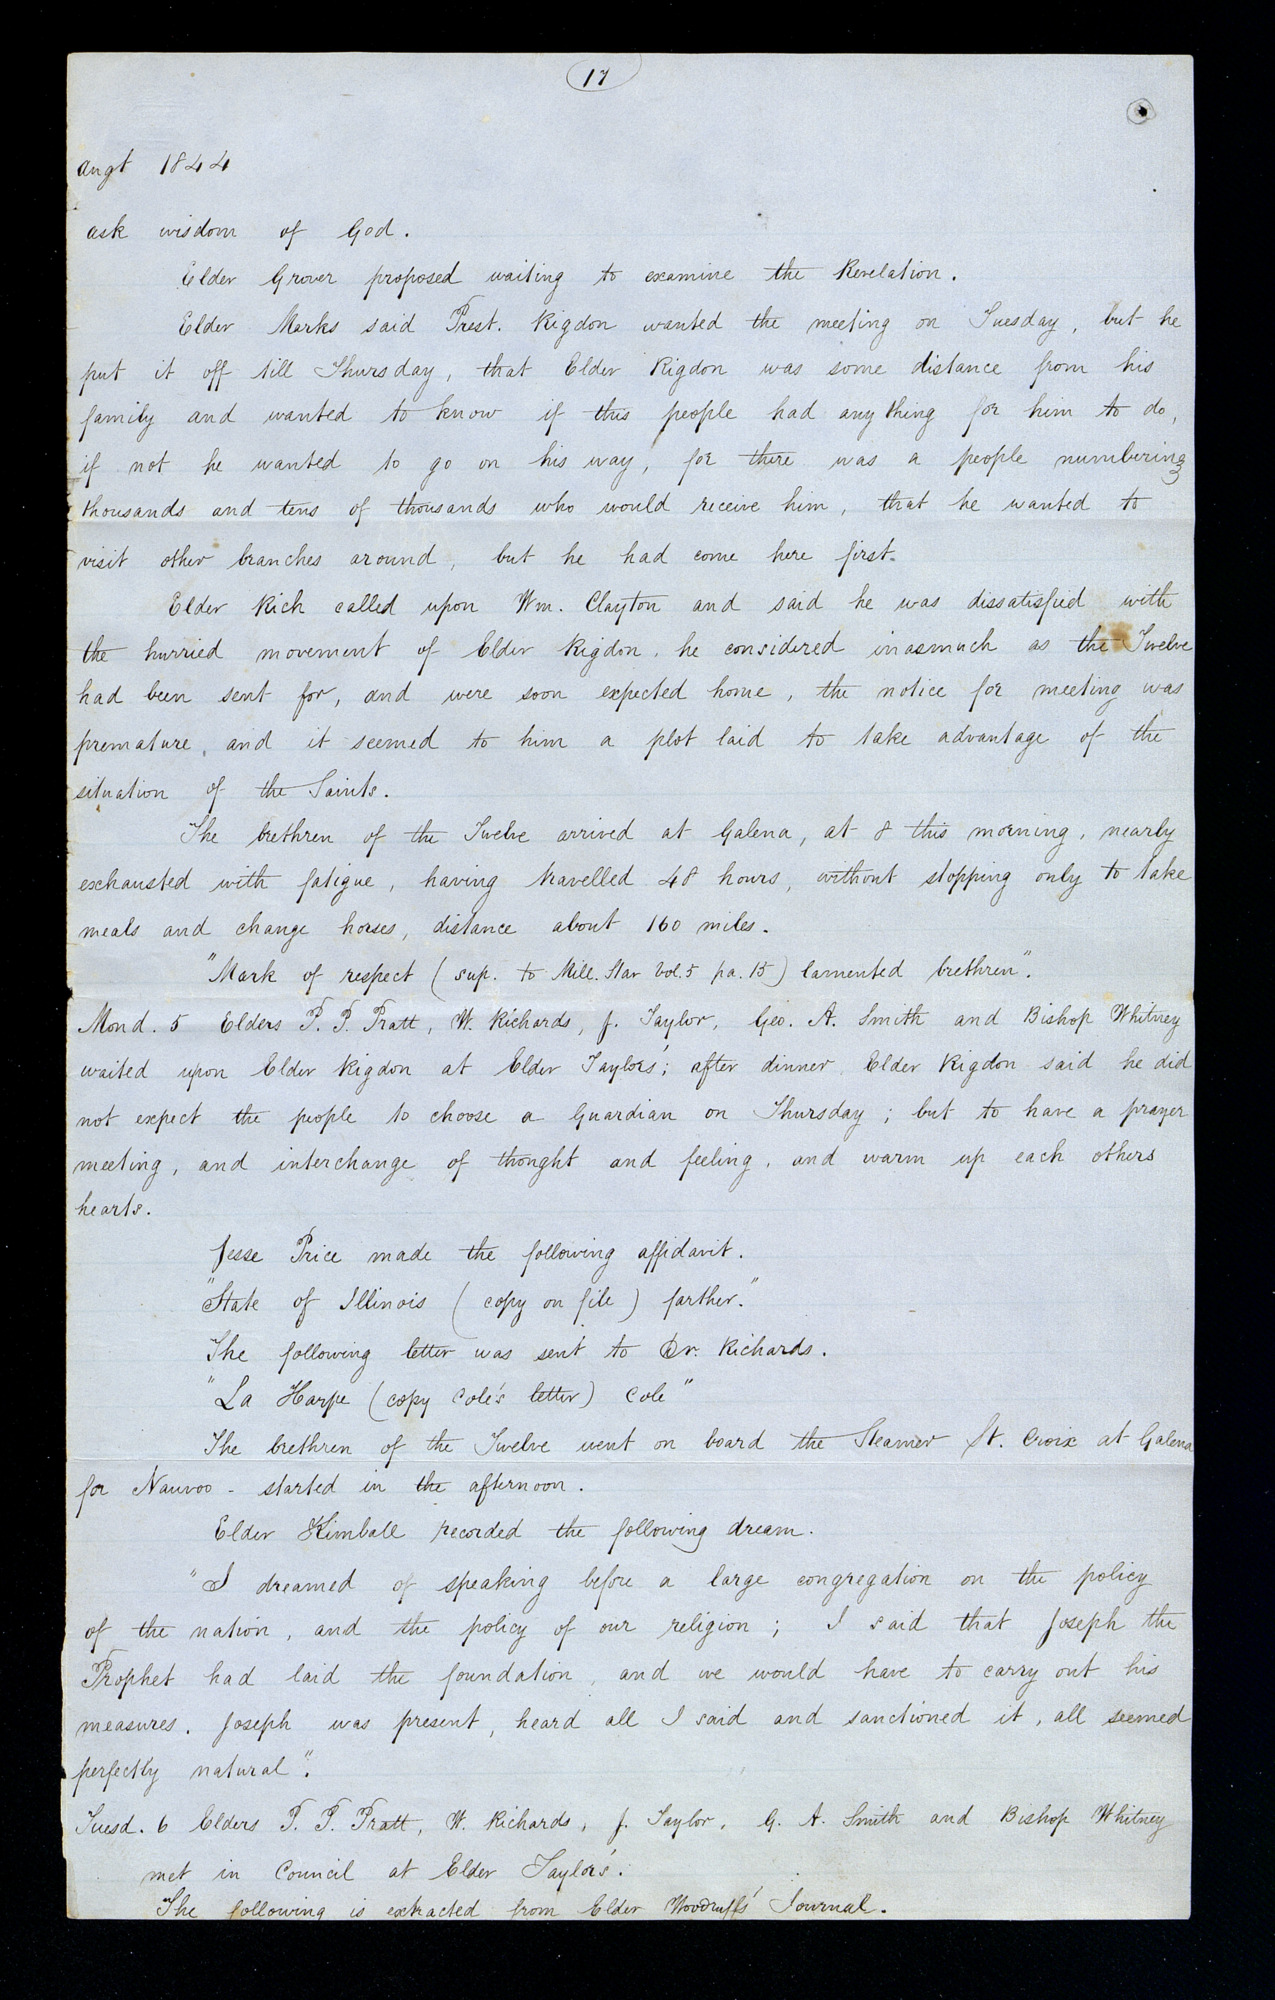 17
Augt 1844
ask wisdom of God.
Elder Grover proposed waiting to examine the Revelation.
Elder Marks said Prest. Rigdon wanted the meeting on Tuesday, but he
put it off till Thursday, that Elder Rigdon was some distance from his
family and wanted to know if this people had any thing for him to do,
if not he wanted to go on his way, for there was a people numbering
thousands and tens of thousands who would receive him, that he wanted to
visit other branches around, but he had come here first.
Elder Rich called upon Wm. Clayton and said he was dissatisfied with
the hurried movement of Elder Rigdon, he considered inasmuch as the Twelve
had been sent for, and were soon expected home, the notice for meeting was
premature, and it seemed to him a plot laid to take advantage of the
situation of the Saints.
The brethren of the Twelve arrived at Galena, at 8 this morning, nearly
exchausted with fatigue, having travelled 48 hours, without stopping only to take
meals and change horses, distance about 160 miles.
"Mark of respect (sup. to Mill. Star Vol.5 pa. 15) lamented brethren".
Mond. 5 Elders P. P. Pratt, W. Richards, J. Taylor, Geo. A. Smith and Bishop Whitney
waited upon Elder Rigdon at Elder Taylors'; after dinner Elder Rigdon said he did
not expect the people to choose a Guardian on Thursday; but to have a prayer
meeting, and interchange of thought and feeling, and warm up each others
hearts.
Jesse Price made the following affidavit.
"State of Illinois (copy on file) farther."
The following letter was sent to Dr. Richards.
"La Harpe (copy Cole's letter) Cole"
The brethren of the Twelve went on board the Steamer St. Croix at Galena
for Nauvoo - started in the afternoon.
Elder Kimball recorded the following dream.
"I dreamed of speaking before a large congregation on the policy
of the nation, and the policy of our religion; I said that Joseph the
Prophet had laid the foundation, and we would have to carry out his
measures. Joseph was present, heard all I said and sanctioned it, all seemed
perfectly natural".
Tuesd. 6 Elders P. P. Pratt, W. Richards, J. Taylor, G. A. Smith and Bishop Whitney
met in Council at Elder Taylors'.
The following is extracted from Elder Woodruffs' Journal.